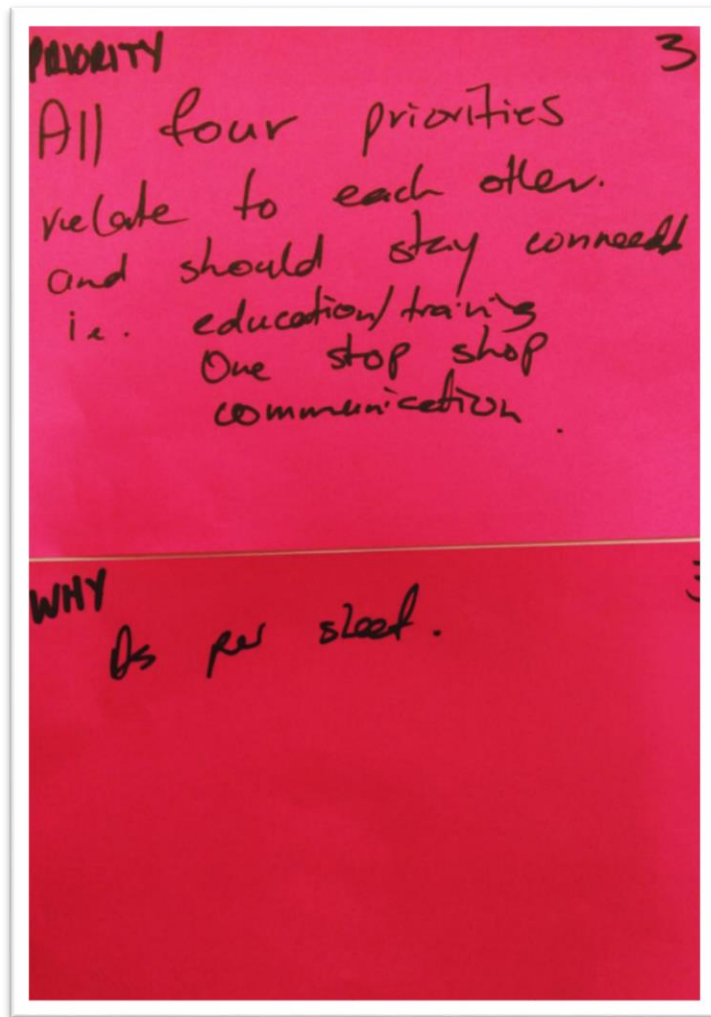 PRIORITY 3
All four priorities
relate to each other.
and should stay connected
i.e. education/training
One stop shop
communication.
WHY 3
As per sheet.